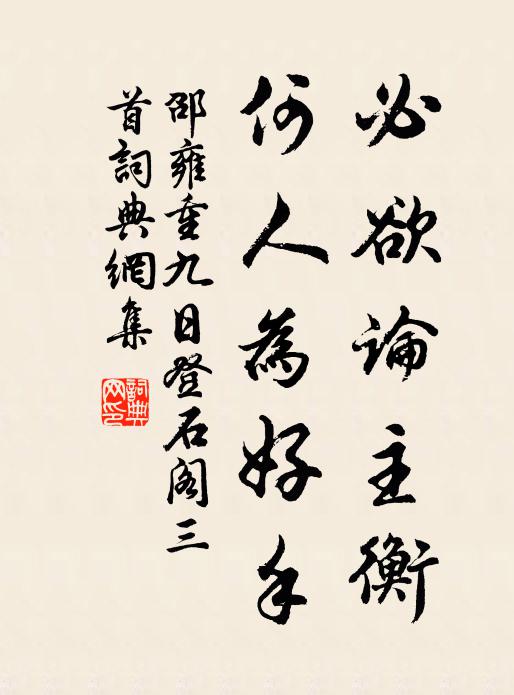 必欲論主衡
何人為好手
邵雍重九日登石阁三
首詞典網集
詞典
网印